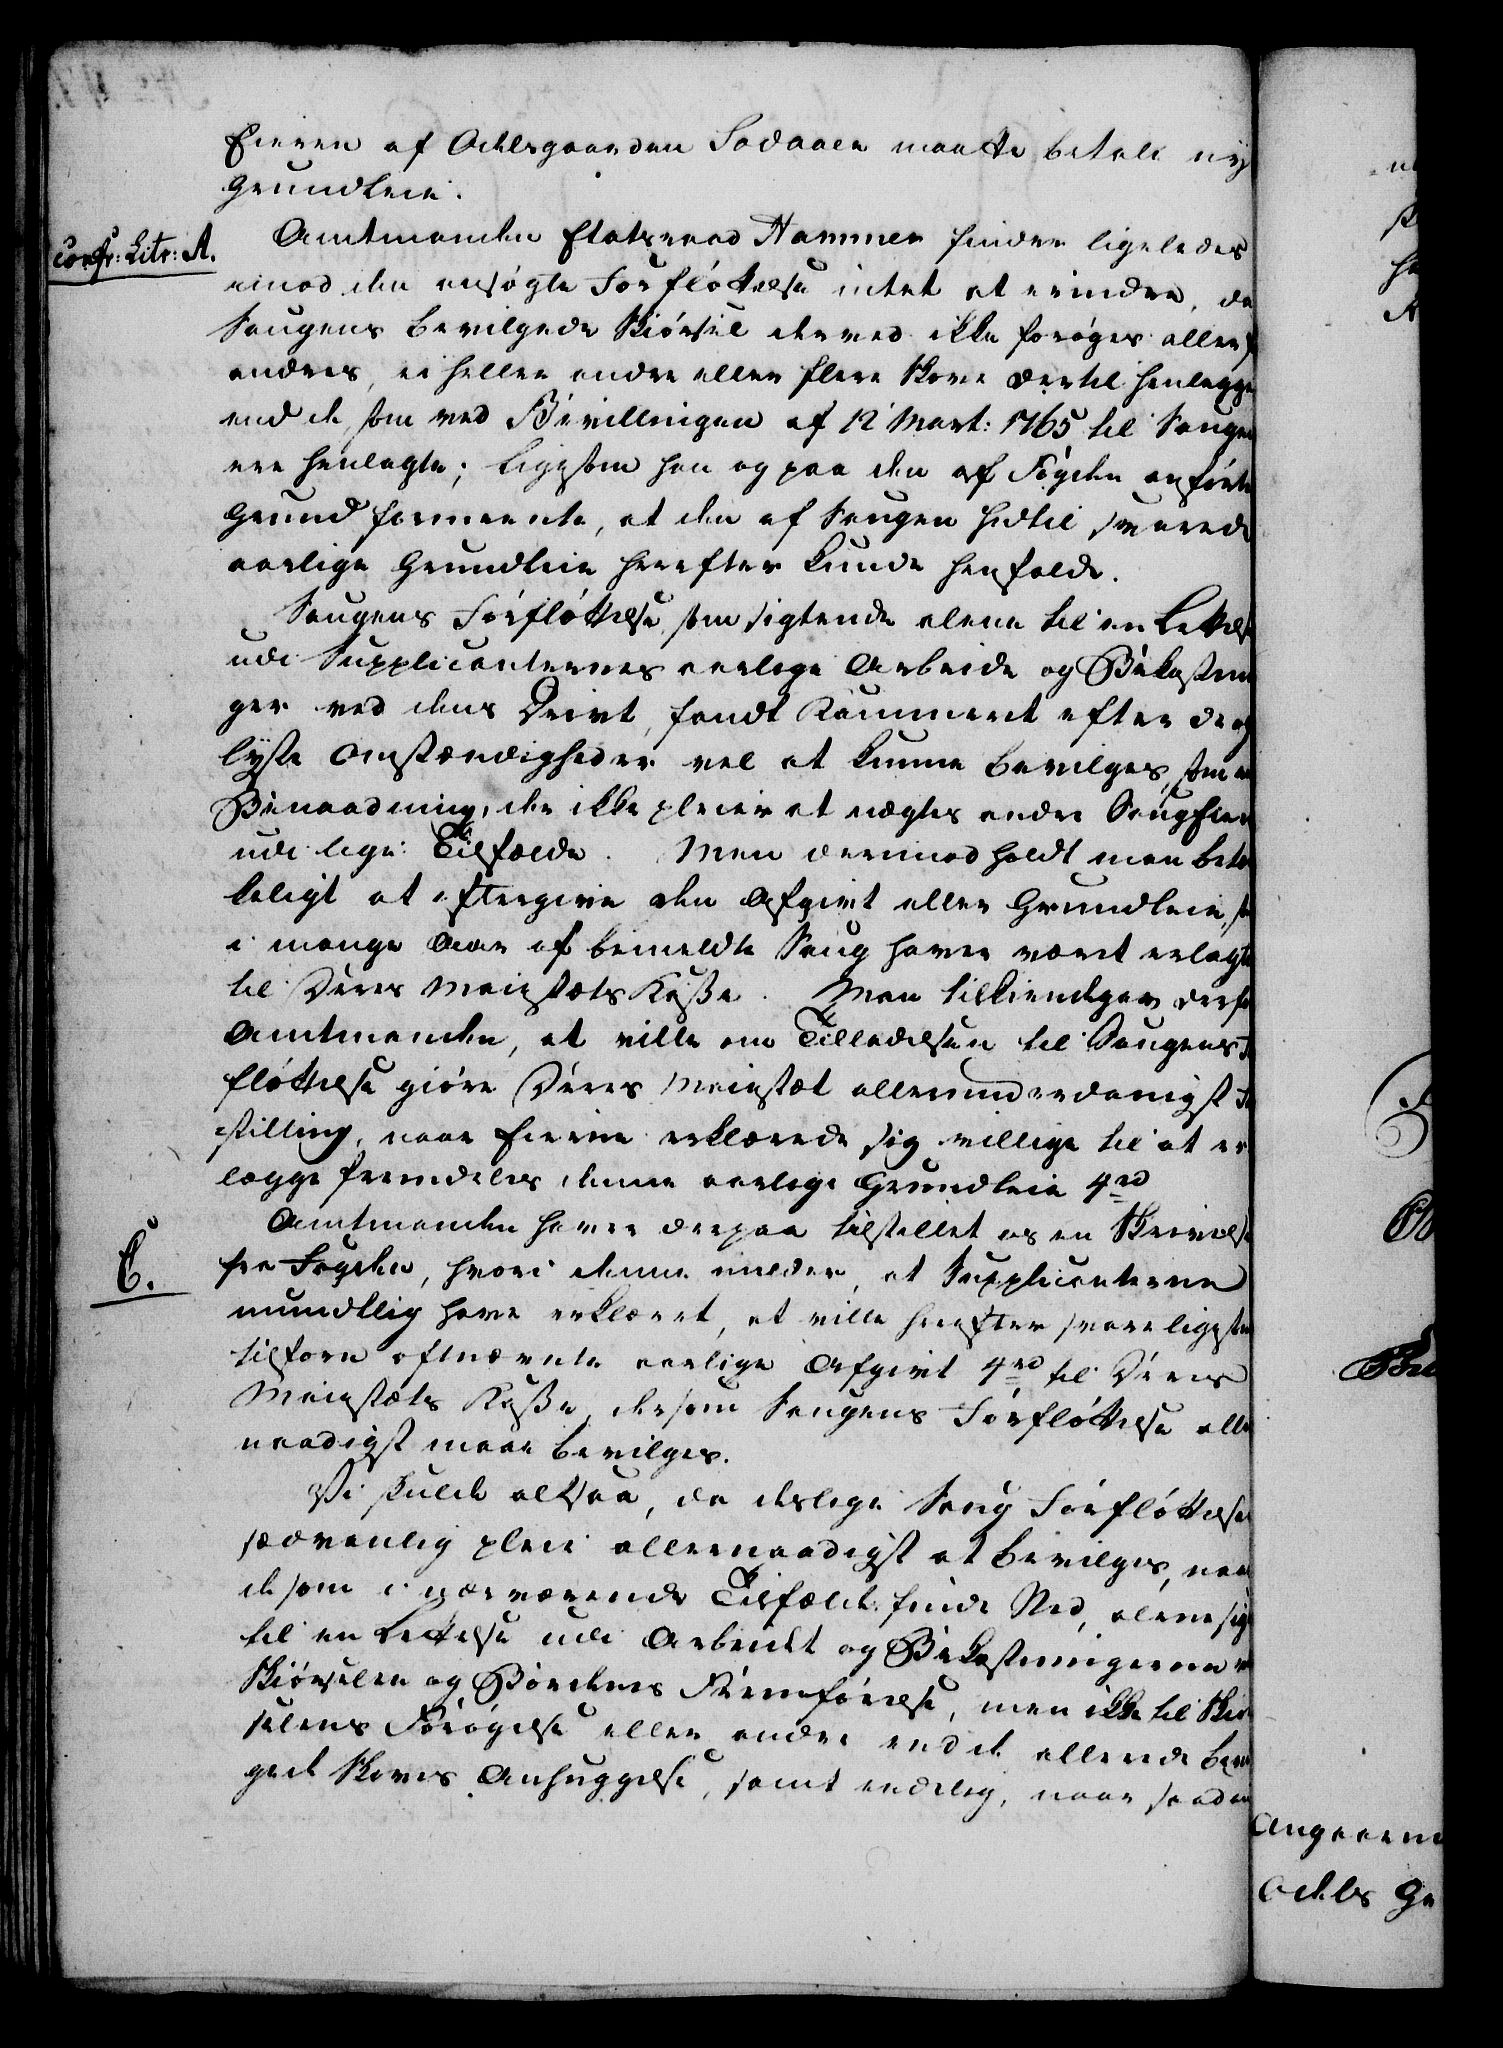 Eieren af Odelsgaarden Sodaaen maatte betale ny
Grundleie.
Confr: Litr: A.
Amtmanden Etatsraad Hammer finder ligeledes
imod den ansøgte Forflöttelse intet at erindre, da
Saugens bevilgede Skiørsel derved ikke forøges eller
andres, ei heller andre eller flere Skove dertil henlegges
end de som ved Bevillingen af 12 Mart: 1765 til Saugen
ere henlagte; ligesom han og paa den af Fogden anførte
Grund formeente, at den af Saugen hidtil svarede
aarlige Grundleie herefter kunde henfalde.
Saugens Forflöttelse, som sigtende alene til en Lettelse
udi Supplicanternes aarlige Arbeide og Bekostnin
ger ved dens Drivt, fandt Kammeret efter de op
lyste Omstændigheder vel at kunne bevilges, som en
Benaadning, der ikke pleier at nægtes andre Saugeiere
udi lige Tilfælde. Men derimod holdt man betæn
keligt at eftergive den Afgivt eller Grundleie, som
i mange Aar af bemeldte Saug haver været erlagt
til Deres Majestæts Kasse. Man tilkiendegav derfor
Amtmanden, at ville om Tilladelsen til Saugens For
flöttelse giöre Deres Majestæt allerunderdanigst Fore
stilling, naar Eierne erklærede sig villige til at er
lægge fremdeles denne aarlige Grundleie 4 rd
C.
Amtmanden haver derpaa tilstillet os en Skrivelse
fra Fogden, hvori denne melder, at Supplicanterne
mundtlig have erklæret, at ville herefter svare ligesom
tilforn oftnævnte aarlige Afgivt 4 rd til Deres
Majestæts Kasse, dersom Saugens Forflöttelse aller
naadigst maae bevilges.
Vi skulde altsaa, da deslige Saug Forflöttelser
sædvanlig pleie allernaadigst at bevilges, naar
de som i nærværende Tilfælde finde Sted, alene sigte
til en Lettelse udi Arbeidet og Bekostningerne ved
Skiørselen og Bordenes Fremförelse, men ikke til Skiör
selens Forøgelse eller andre end de allerede bevil
gede Skoves Anhuggelse, samt endelig, naar saadan
Angaaen
Odels Ga